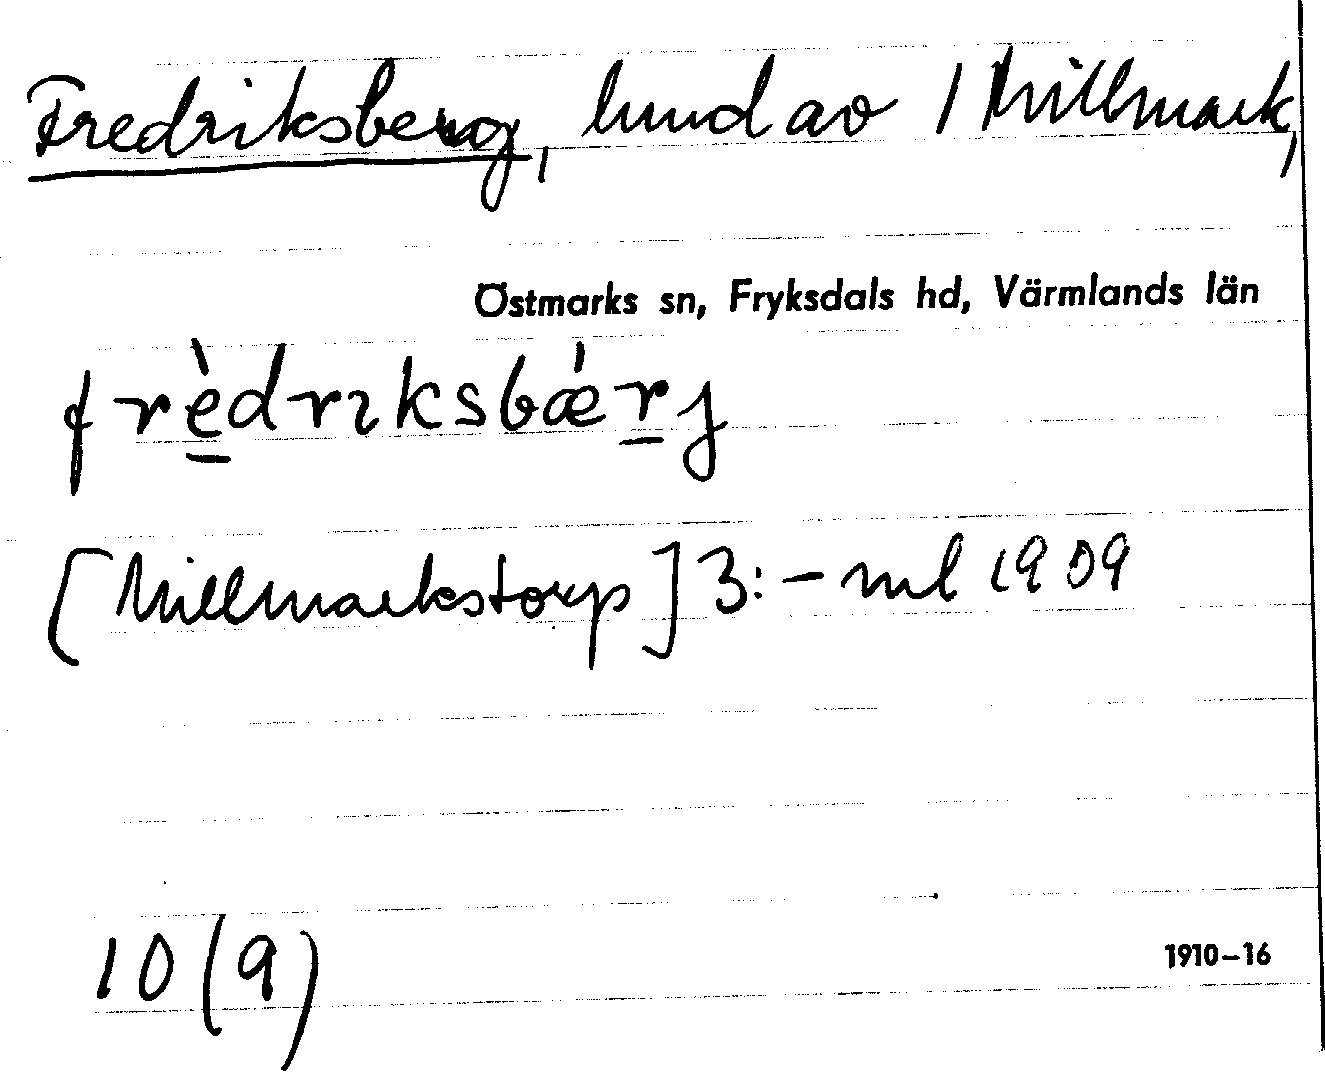 Fredriksberg, lund av 1 Millmark,
Östmarks sn, Fryksdals hd, Värmlands län
frè̱driksbǽṟj
[Millmarkstorp] 3:– ml 1909
10 (9)
1910–16